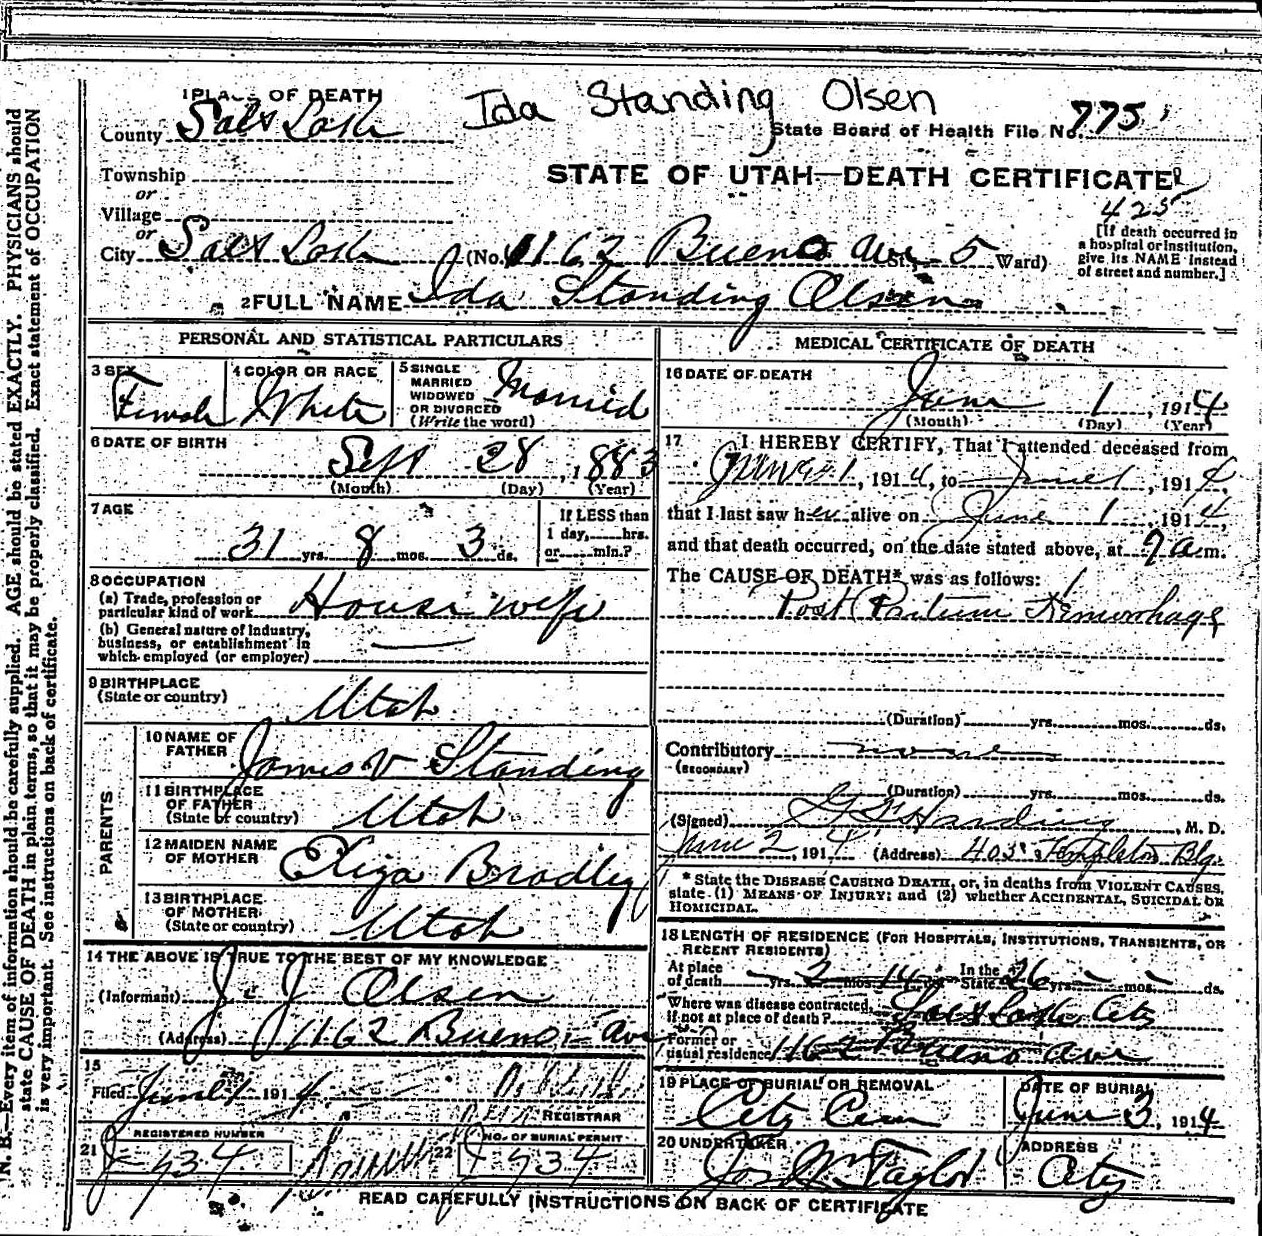 Ida Standing Olsen
1 PLACE OF DEATH
County Salt Lake
State Board of Health File No. 775
Township
or
Village
or
STATE OF UTAH—DEATH CERTIFICATE
425
City Salt Lake (No. 1162 Bueno Ave St. 5 Ward)
[If death occurred in
a hospital or institution,
give its NAME instead
of street and number.]
2 FULL NAME Ida Standing Olsen
PERSONAL AND STATISTICAL PARTICULARS
3 SEX Female
4 COLOR OR RACE White
5 SINGLE
MARRIED
WIDOWED
OR DIVORCED
(Write the word)
Married
6 DATE OF BIRTH
Sept 28, 1883
(Month) (Day) (Year)
7 AGE
31 yrs. 8 mos. 3 ds.
If LESS than
1 day, hrs.
or min.?
8 OCCUPATION
(a) Trade, profession or
particular kind of work House wife
(b) General nature of industry,
business, or establishment in
which employed (or employer)
9 BIRTHPLACE
(State or country) Utah
PARENTS
10 NAME OF
FATHER James V Standing
11 BIRTHPLACE
OF FATHER
(State or country) Utah
12 MAIDEN NAME
OF MOTHER Eliza Bradley
13 BIRTHPLACE
OF MOTHER
(State or country) Utah
14 THE ABOVE IS TRUE TO THE BEST OF MY KNOWLEDGE
(Informant) J. J Olsen
(Address) 1162 Bueno Ave
15
Filed June 1914
REGISTRAR
21 REGISTERED NUMBER
J 734
22 NO. OF BURIAL PERMIT
J 734
MEDICAL CERTIFICATE OF DEATH
16 DATE OF DEATH
June 1, 1914
(Month) (Day) (Year)
17 I HEREBY CERTIFY, That I attended deceased from
June 1, 1914, to June 1, 1914,
that I last saw her alive on June 1 1914,
and that death occurred, on the date stated above, at 7 a.m.
The CAUSE OF DEATH* was as follows:
Post Partum Hemorrhage
(Duration) yrs. mos. ds.
Contributory none
(SECONDARY)
(Duration) yrs. mos. ds.
(Signed) Harding, M. D.
June 2, 1914 (Address) 405 Templeton Blg.
* State the DISEASE CAUSING DEATH, or, in deaths from VIOLENT CAUSES,
state (1) MEANS OF INJURY; and (2) whether ACCIDENTAL, SUICIDAL OR
HOMICIDAL.
18 LENGTH OF RESIDENCE (FOR HOSPITALS, INSTITUTIONS, TRANSIENTS, OR
RECENT RESIDENTS)
At place
of death yrs. mos. ds. In the
State 26 yrs. mos. ds.
Where was disease contracted,
if not at place of death? Salt Lake City
Former or
usual residence 1162 Bueno Ave
19 PLACE OF BURIAL OR REMOVAL
City Cem
DATE OF BURIAL
June 3, 1914
20 UNDERTAKER
Jos Wm Taylor
ADDRESS
City
READ CAREFULLY INSTRUCTIONS ON BACK OF CERTIFICATE
N. B.—Every item of information should be carefully supplied. AGE should be stated EXACTLY. PHYSICIANS should
state CAUSE OF DEATH in plain terms, so that it may be properly classified. Exact statement of OCCUPATION
is very important. See instructions on back of certificate.